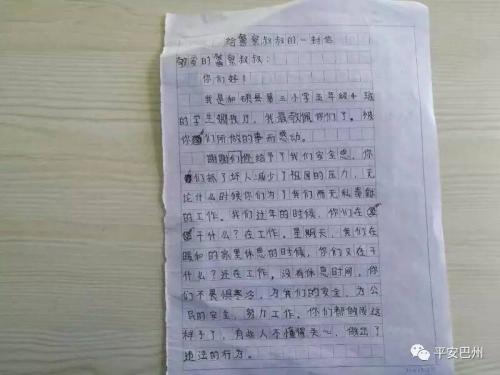 给警察叔叔的一封信
敬爱的警察叔叔:
你们好!
我是和硕县第三小学五年级4班
的学生 我最敬佩你们了。
你们所做的事而感动。
谢谢们给予了我们安全感,你
们抓了坏人减少了祖国的压力,无
论什么时候你们为了我们而无私奉献
的工作。我们过年的时候,你们在
干什么?在工作。星期天,我们在
暖和的家里休息的时候,你们又在干
什么?还在工作。没有休息时间,你
们不畏惧寒冷,为我们的安全,为公
民的安全,努力工作。你们都做成这
样子了,有些人不懂得关心,做出了
违法的行为。
平安巴州